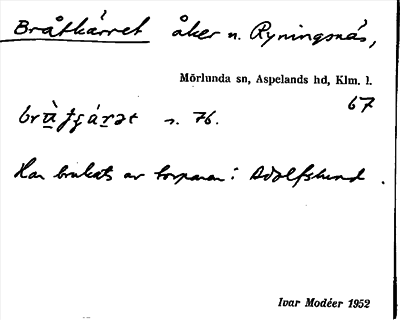 Bråtkärret åker n. Ryningsnäs,
Mörlunda sn, Aspelands hd, Klm. l.
67
s. 76.
Har brukats av torparen i Adolfslund.
Ivar Modéer 1952